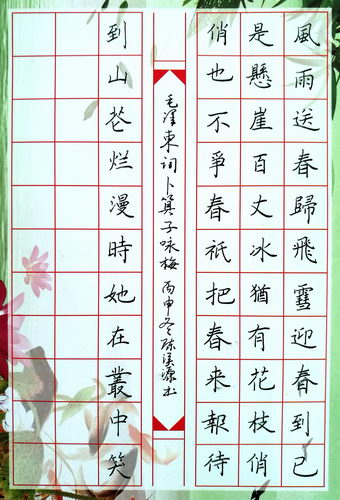 風雨送春歸飛雪迎春到已
是懸崖百丈冰猶有花枝俏
俏也不爭春祇把春来報待
毛泽東词卜算子咏梅 丙申冬陈溪源书
到山花烂漫時她在叢中笑